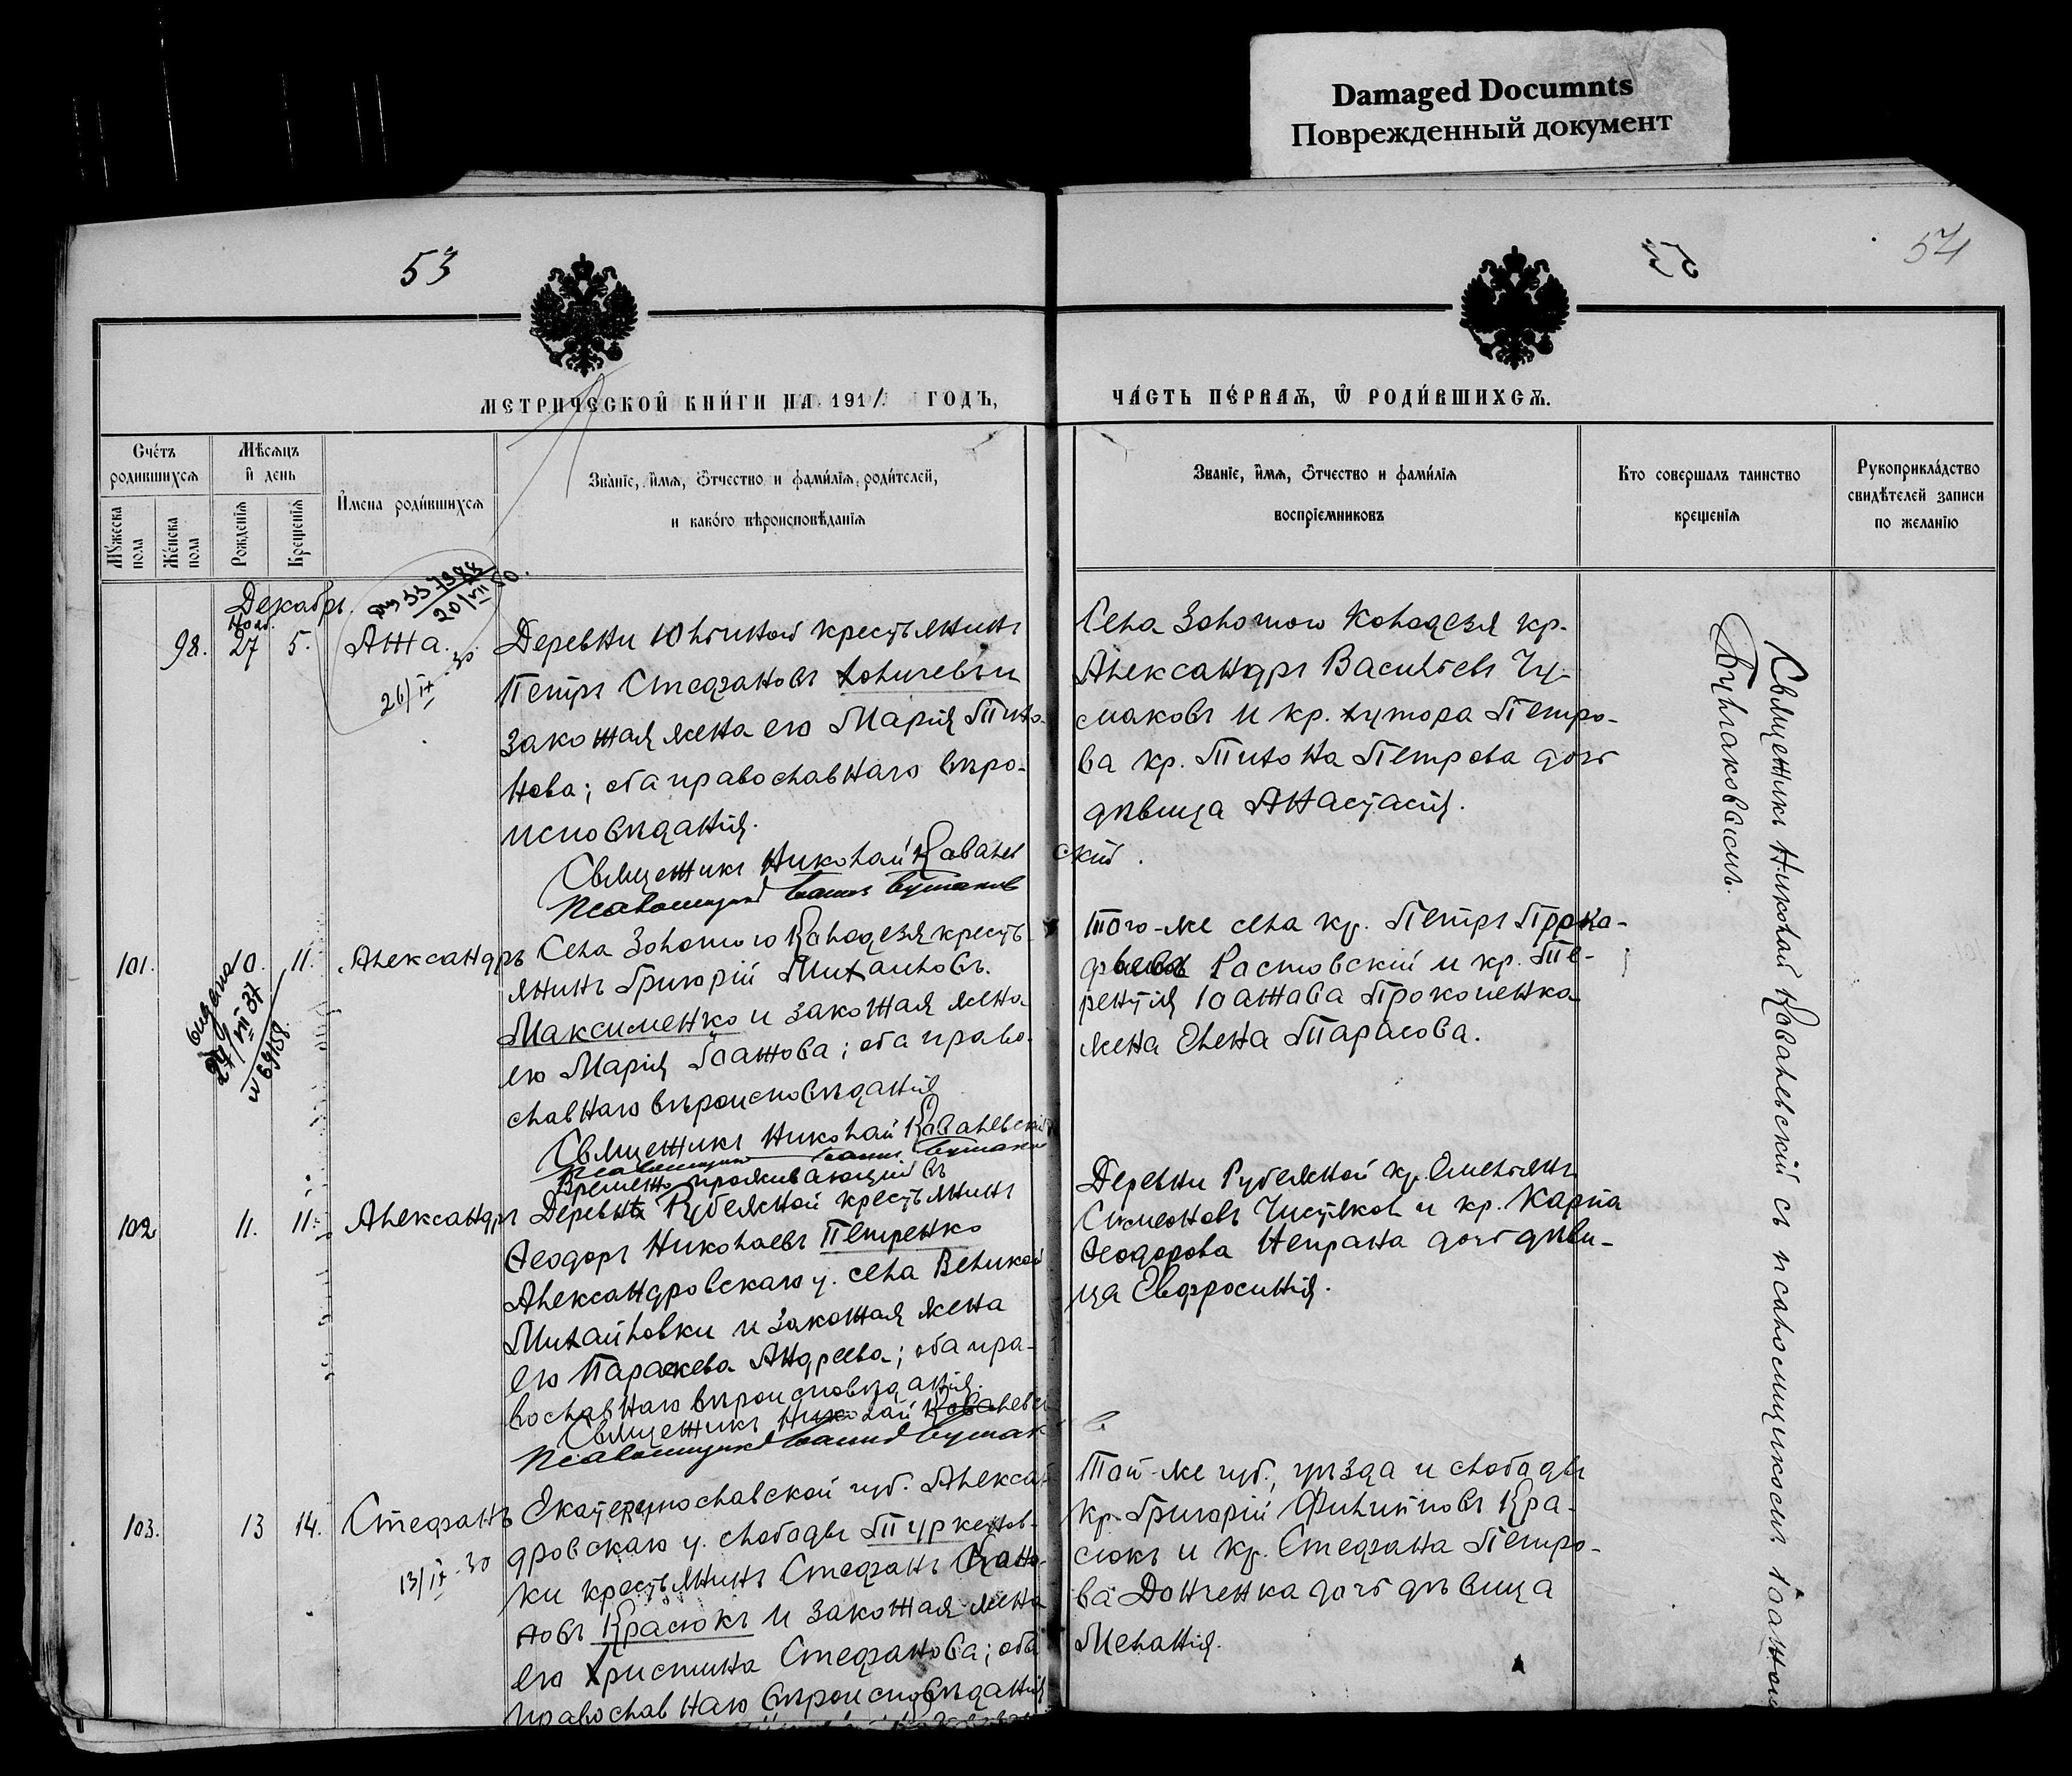 Damaged Documnts
Поврежденный документ
53
54
МЕТРИЧЕСКОЙ КНИГИ НА 1911 ГОДЪ,
ЧАСТЬ ПЕРВАЯ, Ѿ РОДИВШИХСЯ.
Счетъ родившихся
Мужеска пола
Женска пола
Мѣсяцъ и день
Рожденія
Крещенія
Имена родившихся
Званіе, имя, отчество и фамилія родителей,
и какого вѣроисповѣданія
Званіе, имя, отчество и фамилія
воспріемниковъ
Кто совершалъ таинство
крещенія
Рукоприкладство
свидѣтелей записи
по желанію
Декабрь.
Нояб.
98. 27 5. Анна.
20/VII 50.
26/IX - 30
Деревни Юльиной крестьянинъ
Петръ Стефановъ Холичевъ и
законная жена его Марія Тихо-
нова; оба православнаго вѣро-
исповѣданія.
Священникъ Николай Ковалевскій.
Псаломщикъ Іоаннъ
Села Золотого Колодезя кр.
Александръ Васильевъ Чу-
маковъ и кр. хутора Петро-
ва кр. Тихона Петрова дочь
дѣвица Анастасія.
101. 10. 11. Александръ
выдана
27/VII 37
№ 69158
Села Золотого Колодезя кресть-
янинъ Григорій Михаиловъ
Максименко и законная жена
его Марія Іоаннова; оба право-
славнаго вѣроисповѣданія
Священникъ Николай Ковалевскій
Псаломщикъ Іоаннъ
Того-же села кр. Петръ Прока-
Ростовскій и кр. Те-
рентія Іоаннова Прокопенка
жена Елена Тарасова.
102 11. 11. Александръ
Временно проживающій въ
Деревнѣ Рубежной крестьянинъ
Ѳеодоръ Николаевъ Петренко
Александровскаго у. села Великой
Михайловки и законная жена
его Параскева Андреева; оба пра-
вославнаго вѣроисповѣданія.
Священникъ Николай Ковалевск
Псаломщикъ Іоаннъ
Деревни Рубежной кр. Емельянъ
Симеоновъ Чистяковъ и кр. Карпа
Ѳеодорова Непрана дочь дѣви-
ца Евфросинія.
103. 13 14. Стефанъ
13/IX - 30
Екатеринославской губ. Алексан-
дровскаго у. слободы Туркенов-
ки крестьянинъ Стефанъ
новъ Красюкъ и законная жена
его Христина Стефанова; оба
православнаго вѣроисповѣданія
Той-же губ., уѣзда и слободы
кр. Григорій Филипповъ Кра-
сюкъ и кр. Стефана Петро-
ва Донченка дочь дѣвица
Меланія.
Священникъ Николай Ковалевскій съ псаломщикомъ Іоанномъ